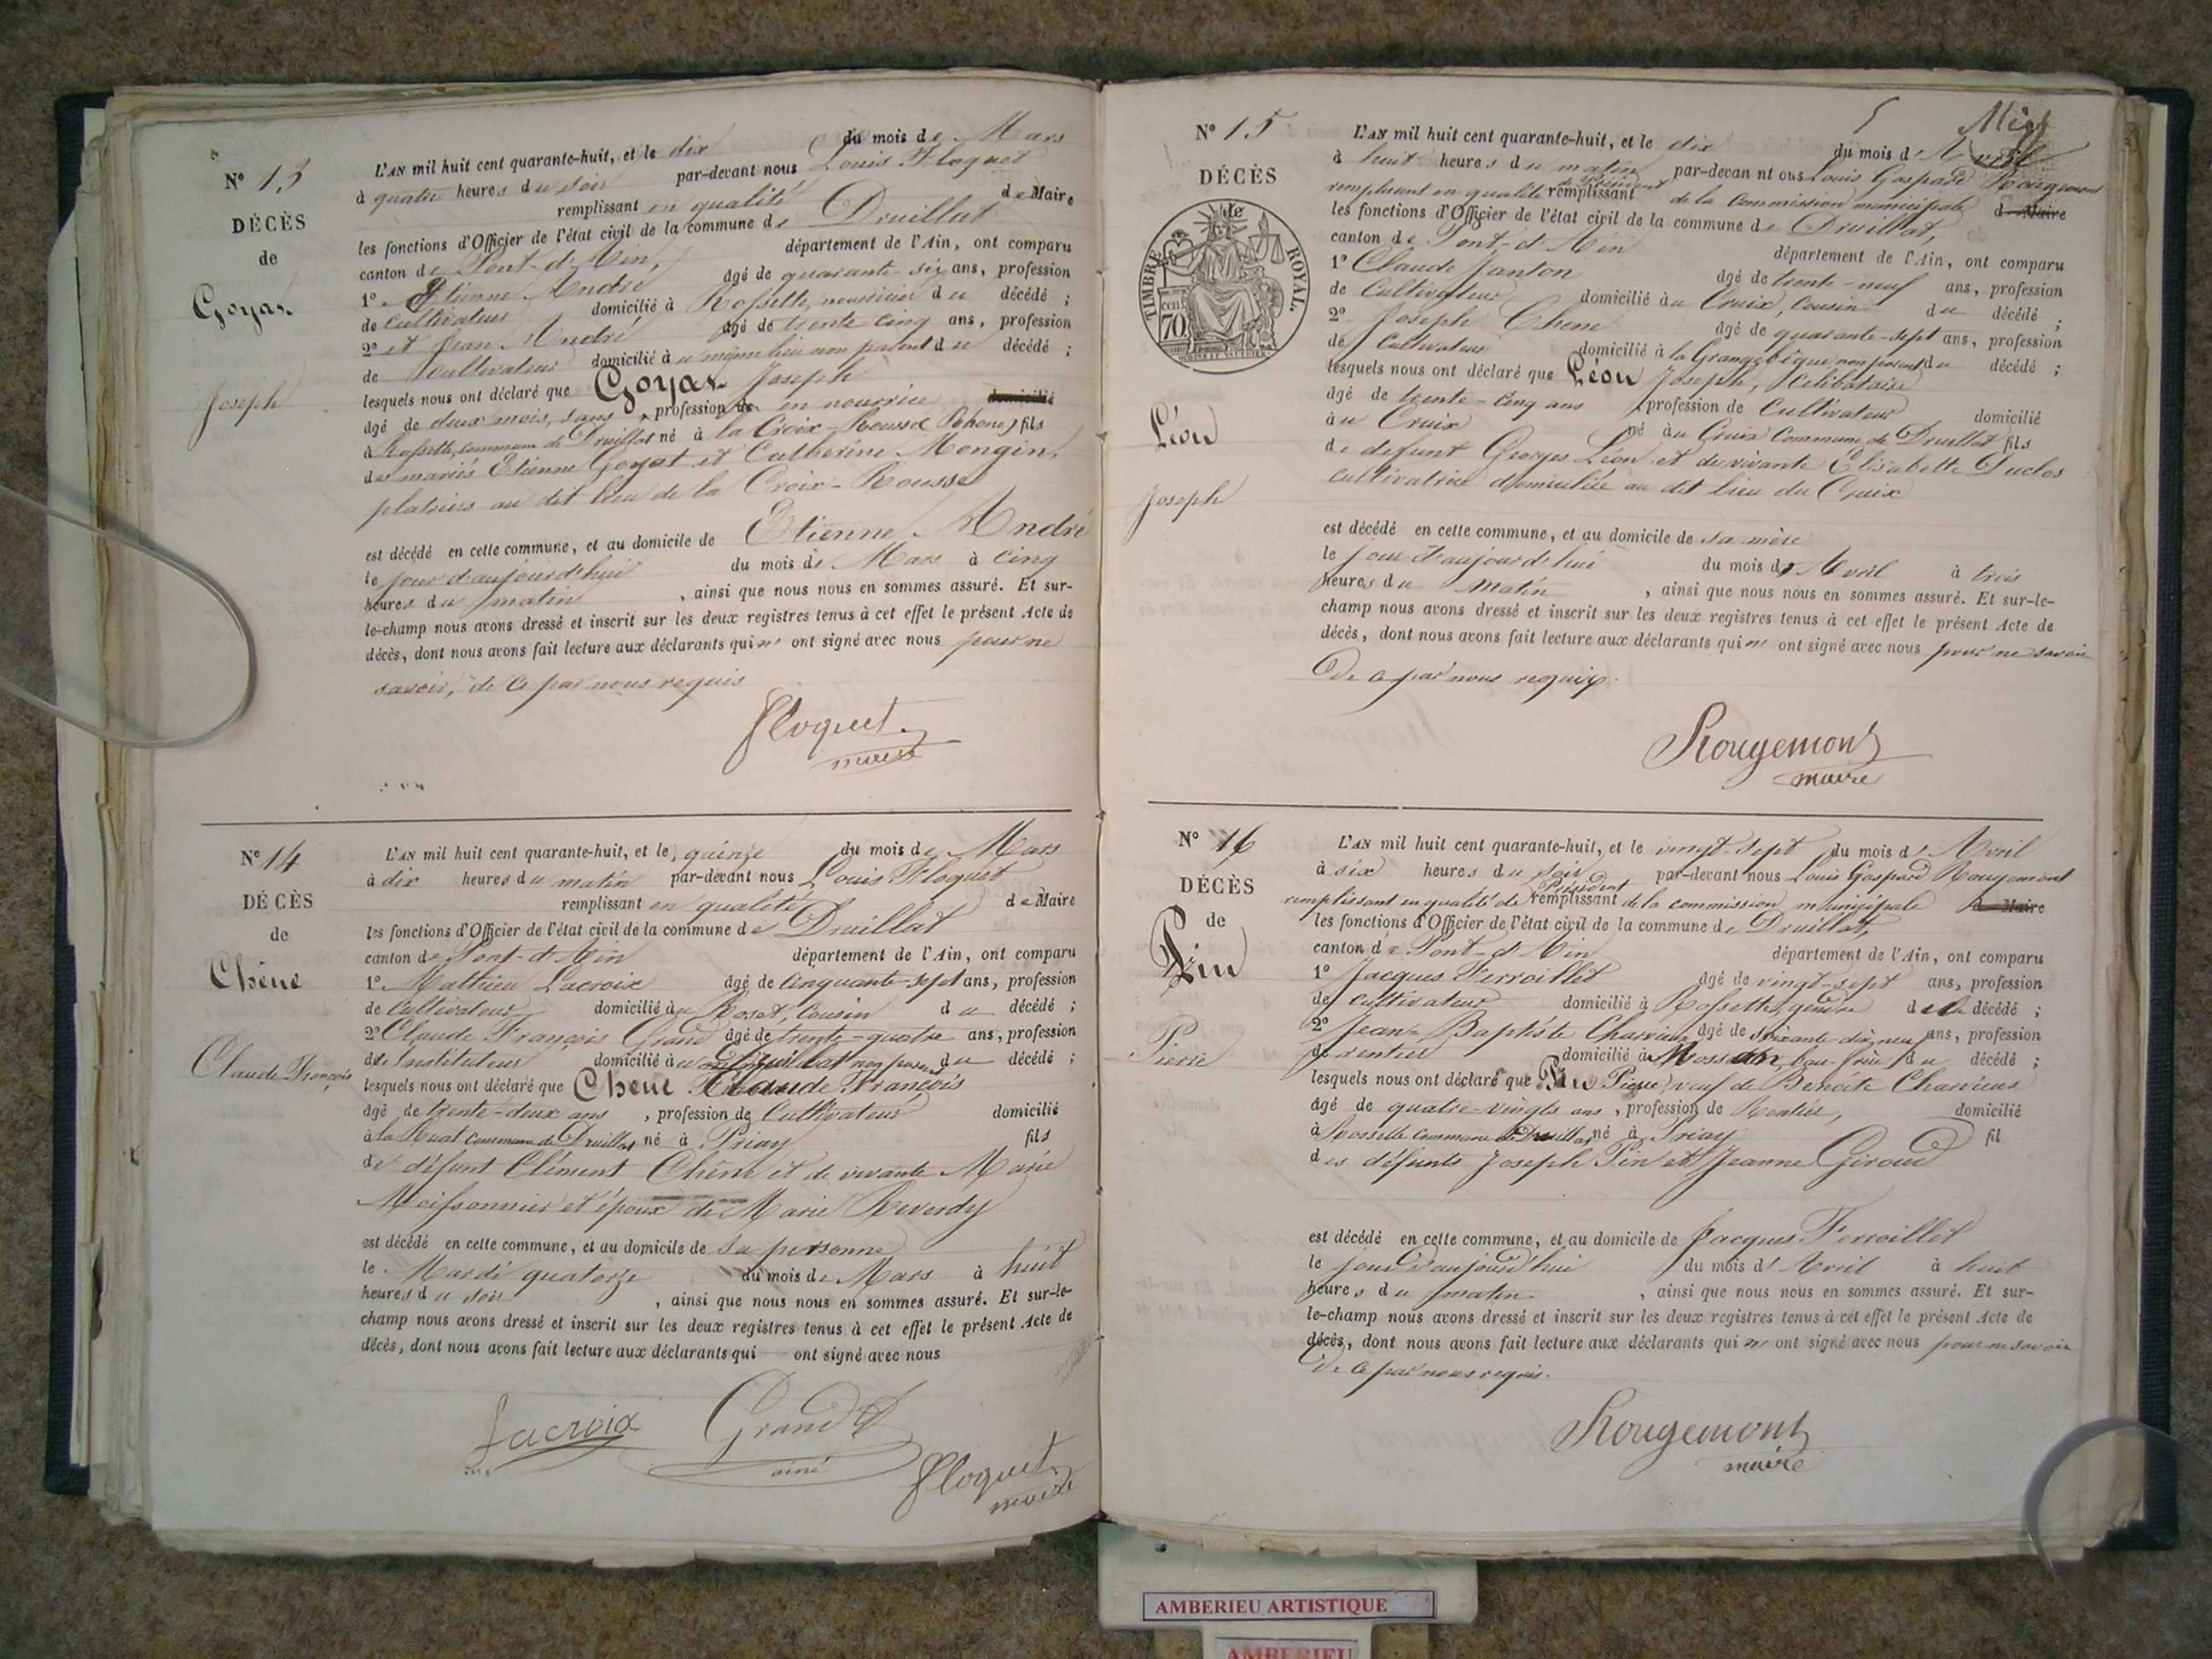 N° 13
DÉCÈS
de
Goyat
Joseph
L'AN mil huit cent quarante-huit, et le dix du mois de Mars
à quatre heures du soir par-devant nous Louis Floquet
remplissant en qualité de Maire
les fonctions d'Officier de l'état civil de la commune de Druillat
canton de Pont-d'Ain, département de l'Ain, ont comparu
1° Etienne André âgé de quarante-six ans, profession
de cultivateur domicilié à Rossette, nourricier du décédé ;
2° et Jean André âgé de trente cinq ans, profession
de cultivateur domicilié au même lieu non parent du décédé ;
lesquels nous ont déclaré que Goyat Joseph
âgé de deux mois, sans profession en nourrice domicilié
à Rossette, commune de Druillat né à la Croix-Rousse (Rhône) fils
des mariés Etienne Goyat et Catherine Mongin,
platriers au dit lieu de la Croix-Rousse
est décédé en cette commune, et au domicile de Etienne André
le jour d'aujourd'hui du mois de Mars à cinq
heures du matin, ainsi que nous nous en sommes assuré. Et sur-
le-champ nous avons dressé et inscrit sur les deux registres tenus à cet effet le présent Acte de
décès, dont nous avons fait lecture aux déclarants qui n' ont signé avec nous pour ne
savoir, de ce par nous requis
Floquet
maire
N° 14
DÉCÈS
de
Chêne
Claude François
L'AN mil huit cent quarante-huit, et le quinze du mois de Mars
à dix heures du matin par-devant nous Louis Floquet
remplissant en qualité de Maire
les fonctions d'Officier de l'état civil de la commune de Druillat
canton de Pont-d'Ain département de l'Ain, ont comparu
1° Mathieu Lacroix âgé de cinquante-sept ans, profession
de cultivateur domicilié au Roset, cousin du décédé ;
2° Claude François Grand âgé de trente-quatre ans, profession
de Instituteur domicilié à Druillat non parent du décédé ;
lesquels nous ont déclaré que Chêne Claude François
âgé de trente-deux ans, profession de Cultivateur domicilié
à la Ruat commune de Druillat né à Priay fils
de défunt Clément Chêne et de vivante Marie
Moissonnier et époux de Marie Reverdy
est décédé en cette commune, et au domicile de sa personne
le Mardi quatorze du mois de Mars à huit
heures du soir, ainsi que nous nous en sommes assuré. Et sur-le-
champ nous avons dressé et inscrit sur les deux registres tenus à cet effet le présent Acte de
décès, dont nous avons fait lecture aux déclarants qui ont signé avec nous
Lacroix Grand
ainé
Floquet
maire
N° 15
DÉCÈS
de
TIMBRE ROYAL
70 cen
Léon
Joseph
5
L'AN mil huit cent quarante-huit, et le dix du mois d'Avril
à huit heures du matin par-devant nous Louis Gaspard Rougemont
remplissant en qualité de Président remplissant de la Commission municipale de Maire
les fonctions d'Officier de l'état civil de la commune de Druillat,
canton de Pont-d'Ain département de l'Ain, ont comparu
1° Claude Janton âgé de trente-neuf ans, profession
de Cultivateur domicilié au Cruix, cousin du décédé ;
2° Joseph Chêne âgé de quarante-sept ans, profession
de Cultivateur domicilié à la non parent du décédé ;
lesquels nous ont déclaré que Léon Joseph, Célibataire
âgé de trente-cinq ans profession de Cultivateur domicilié
au Cruix né au Cruix Commune de Druillat fils
de défunt Georges Léon et de vivante Elisabette Duclos
cultivatrice domiciliée au dit lieu du Cruix
est décédé en cette commune, et au domicile de sa mère
le jour d'aujourd'hui du mois d'Avril à trois
heures du matin, ainsi que nous nous en sommes assuré. Et sur-le-
champ nous avons dressé et inscrit sur les deux registres tenus à cet effet le présent Acte de
décès, dont nous avons fait lecture aux déclarants qui n' ont signé avec nous pour ne savoir
De ce par nous requis.
Rougemont
maire
N° 16
DÉCÈS
de
Pin
Pierre
L'AN mil huit cent quarante-huit, et le vingt-sept du mois d'Avril
à six heures du soir par-devant nous Louis Gaspard Rougemont
remplissant en qualité de Président remplissant de la commission municipale de Maire
les fonctions d'Officier de l'état civil de la commune de Druillat,
canton de Pont-d'Ain département de l'Ain, ont comparu
1° Jacques Ferroillet âgé de vingt-sept ans, profession
de cultivateur domicilié à Rossette, gendre du décédé ;
2° Jean-Baptiste Charvieux âgé de soixante dix neuf ans, profession
de rentier domicilié à beau-frère du décédé ;
lesquels nous ont déclaré que Pin Pierre veuf de Benoîte Charvieux
âgé de quatre-vingts ans, profession de Rentier, domicilié
à Rossette commune de Druillat né à Priay fil
des défunts Joseph Pin et Jeanne Giroud
est décédé en cette commune, et au domicile de Jacques Ferroillet
le jour d'aujourd'hui du mois d'Avril à huit
heures du matin, ainsi que nous nous en sommes assuré. Et sur-
le-champ nous avons dressé et inscrit sur les deux registres tenus à cet effet le présent Acte de
décès, dont nous avons fait lecture aux déclarants qui n' ont signé avec nous pour ne savoir
De ce par nous requis.
Rougemont
maire
AMBERIEU ARTISTIQUE
AMBERIEU